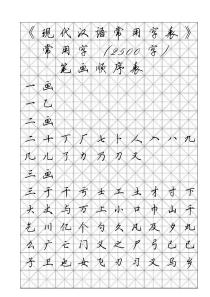 《现代汉语常用字表》
常用字(2500字)
笔画顺序表
一画
一乙
二画
二十丁厂七卜人入八九
几儿了力乃刀又
三画
三于干亏士工土才寸下
大丈与万上小口巾山千
乞川亿个勺久凡及夕丸
么广亡门义之尸弓己已
子卫也女飞刃习叉马乡